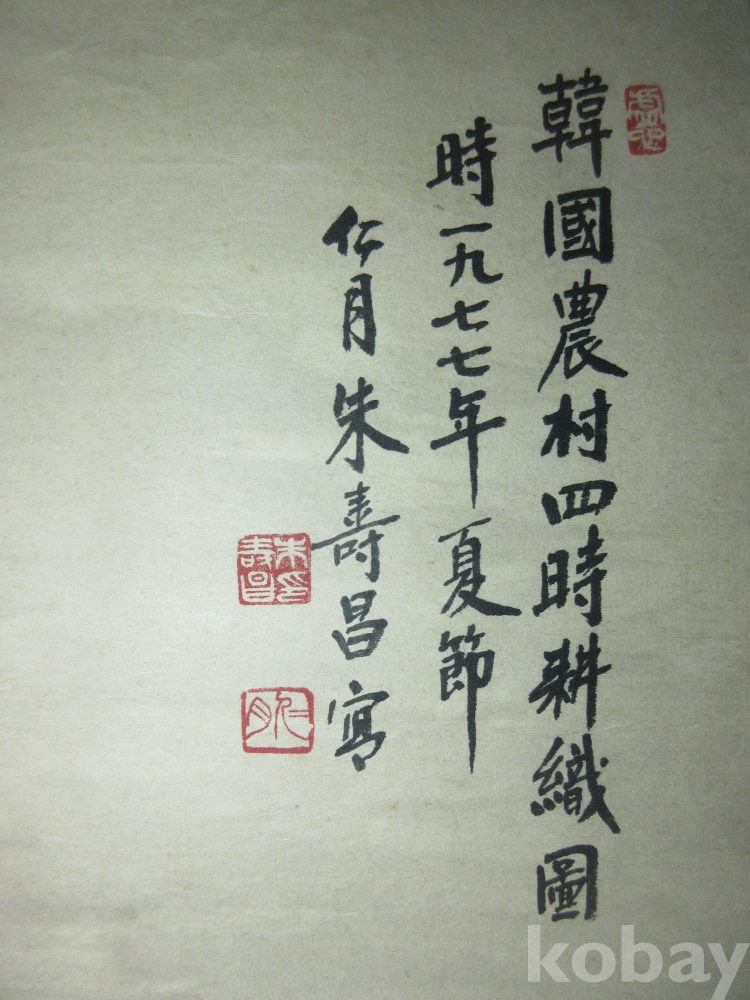 韓國農村四時耕織圖
時一九七七年夏節
仁月朱壽昌寫
朱壽昌印
仁月
kobay